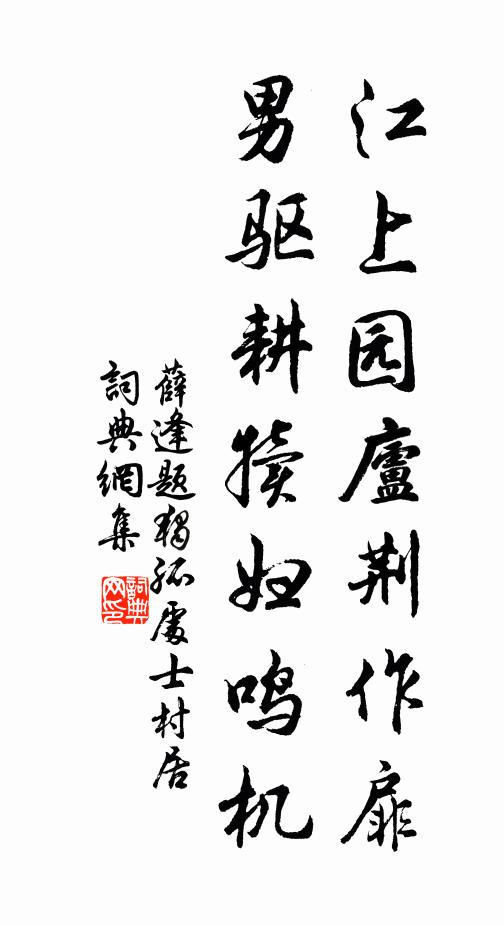 江上园廬荆作扉
男驱耕犊妇鸣机
薛逢题独孤處士村居
詞典網集
詞典网印